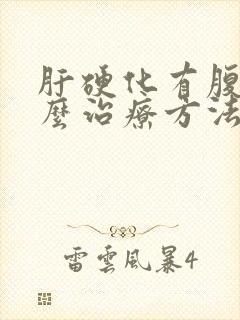 肝硬化有腹
麼治療方法
雷雲風暴4